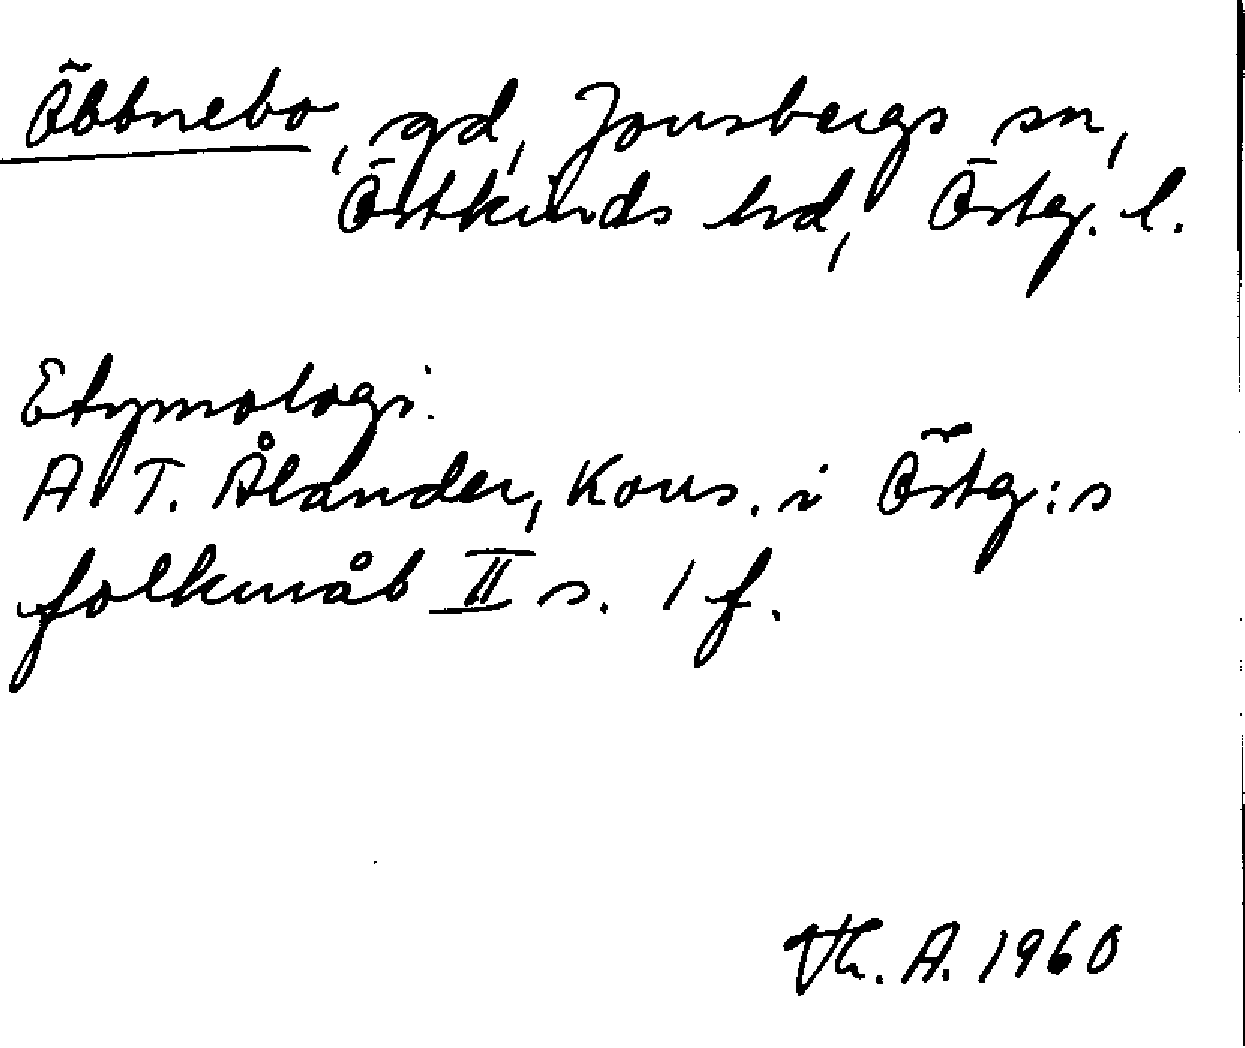 Öbbnebo, gd, Jonsbergs sn,
Östkinds hd, Östg. l.
Etymologi.
A T. Ålander, Kons. i Östg:s
folkmåb II s. 1 f.
Th. A. 1960